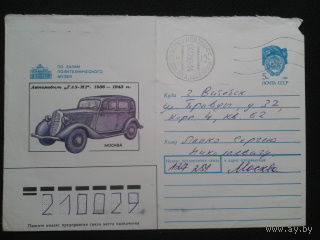 ПО ЗАЛАМ
ПОЛИТЕХНИЧЕСКОГО
МУЗЕЯ
Автомобиль "ГАЗ-М1". 1936 — 1943 гг.
МОСКВА
5 к
ПОЧТА СССР
Куда г Витебск
ул Правды, д 37,
корп 4, кв 62
Кому
Сергею
Николаевичу
Индекс предприятия связи и адрес отправителя
Москва
210029
Пишите индекс предприятия связи места назначения
ay.by